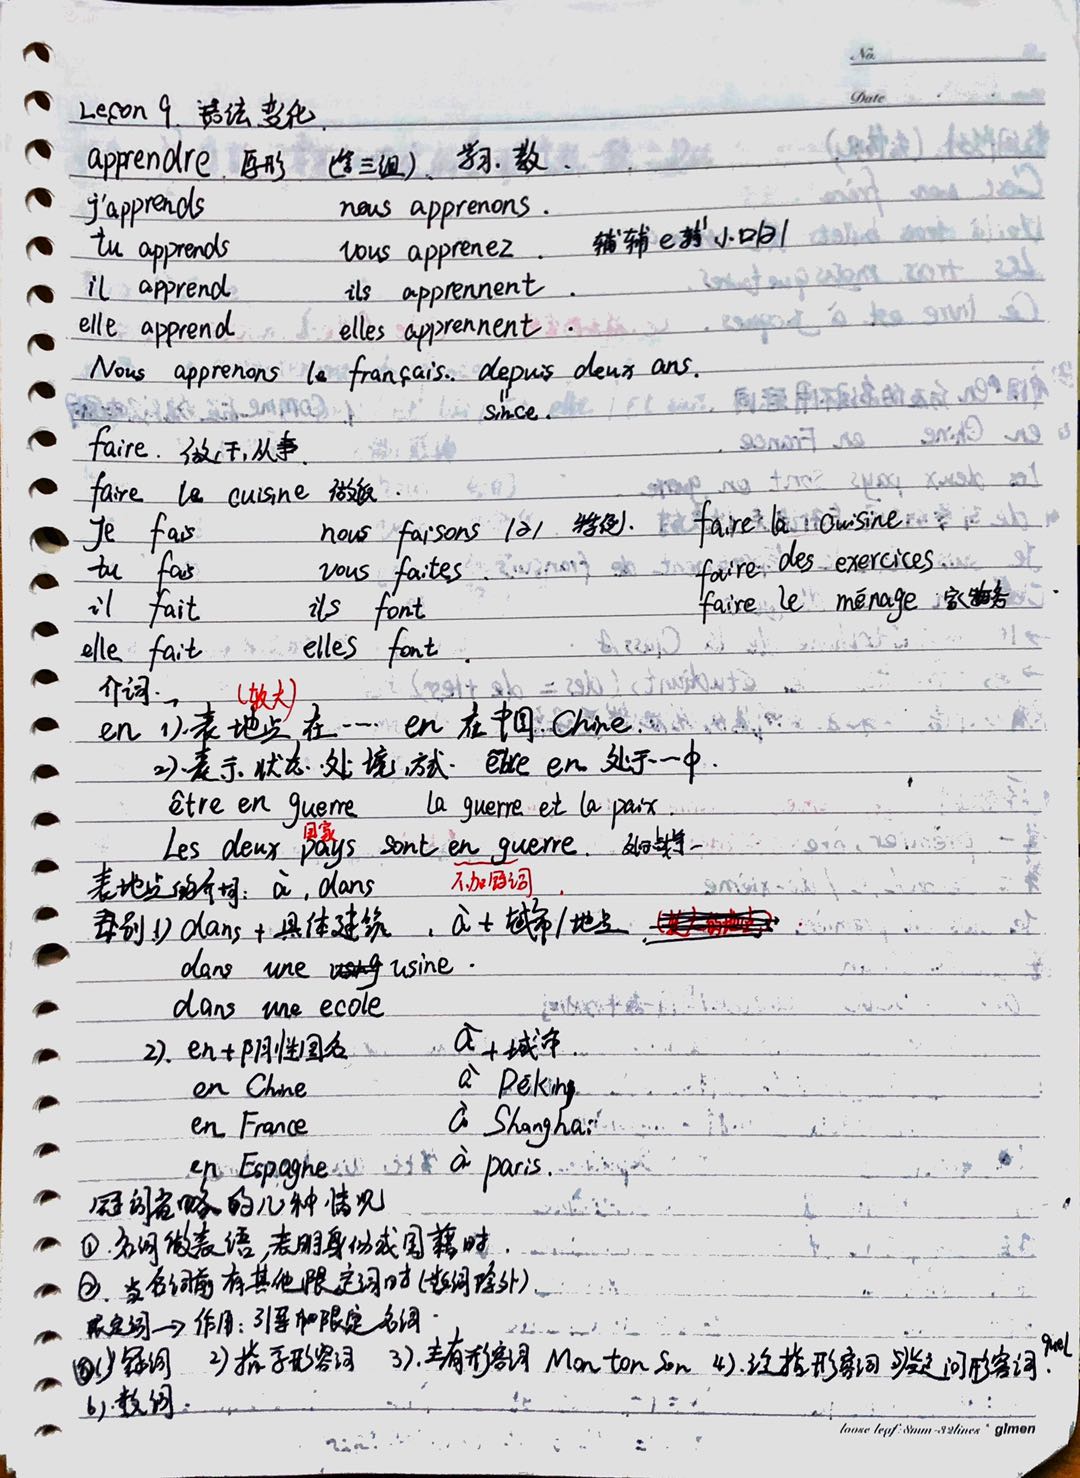 No.
Date
Leçon 9. 语法变化.
apprendre 原形 (第三组). 学习. 教.
j'apprends nous apprenons.
tu apprends vous apprenez. 辅辅e辅 小口 /ə/
il apprend ils apprennent.
elle apprend elles apprennent.
Nous apprenons le français. depuis deux ans.
since.
faire. 做, 干, 从事.
faire la cuisine 做饭.
Je fais nous faisons /ə/ 特例. faire la cuisine
tu fais vous faites. faire des exercices
il fait ils font faire le ménage 家务
elle fait elles font.
介词.
(较大)
en 1).表地点 在…… en 在中国 Chine.
2).表示 状态.处境,方式. être en 处于…中.
être en guerre la guerre et la paix.
国家
Les deux pays sont en guerre.
表地点的介词: à, dans 不加冠词.
类别 1) dans + 具体建筑, à + 城市/地点
dans une usine.
dans une ecole
2). en+阴性国名 à +城市.
en Chine à Pékin
en France à Shanghai
en Espagne à paris.
冠词省略的几种情况
①.名词做表语,表明身份或国籍时.
②.当名词前有其他限定词时(数词除外).
限定词→作用: 引导和限定名词.
1)冠词 2)指示形容词 3).主有形容词 Mon ton Son 4).泛指形容词 5)疑问形容词. quel
6).数词.
loose leaf: 8mm-32lines gimen